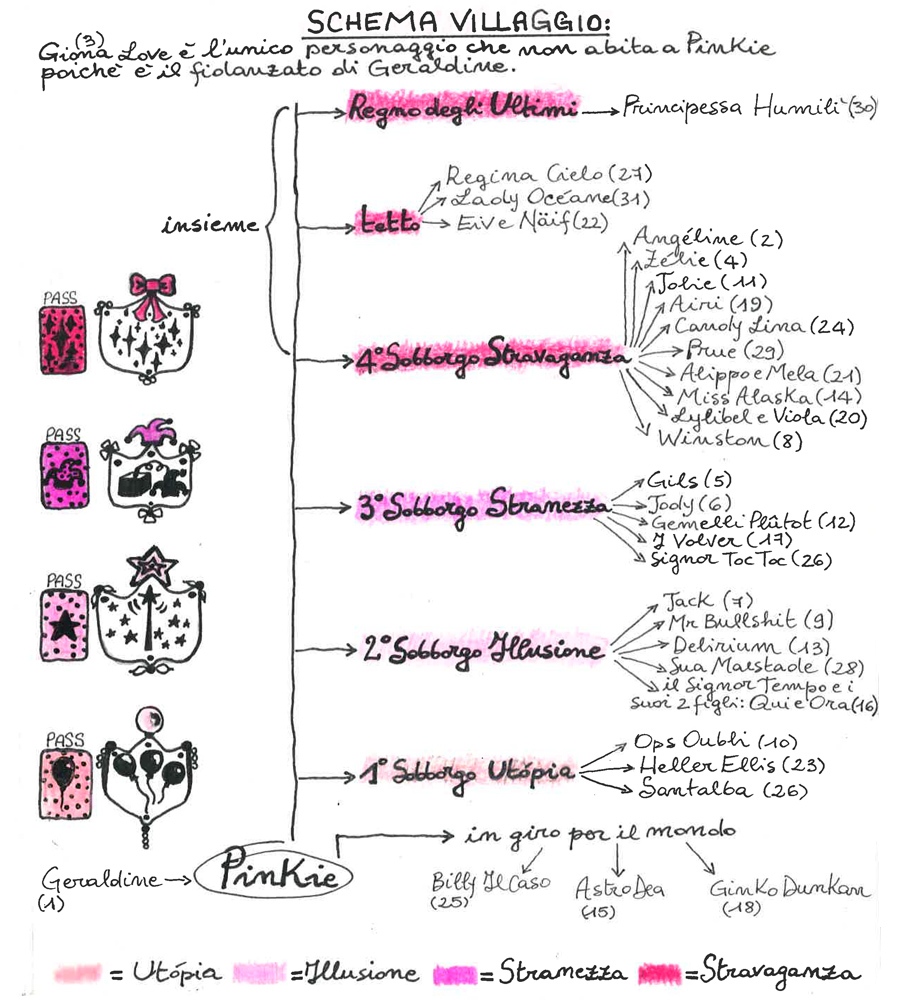 SCHEMA VILLAGGIO:
(3)
Giona Love è l'unico personaggio che non abita a Pinkie
poichè è il fidanzato di Geraldine.
Regno degli Ultimi
Principessa Humili (30)
insieme
tetto
Regina Cielo (27)
Lady Océane (31)
Eive Näif (22)
PASS
4° Sobborgo Stravaganza
Angéline (2)
Zélie (4)
Jolie (11)
Airi (19)
Candy Lina (24)
Prue (29)
Alippo e Mela (21)
Miss Alaska (14)
Lylibel e Viola (20)
Winston (8)
PASS
3° Sobborgo Stranezza
Gils (5)
Jody (6)
Gemelli Plûtot (12)
J Volver (17)
Signor Toc Toc (26)
PASS
2° Sobborgo Illusione
Jack (7)
Mr Bullshit (9)
Delirium (13)
Sua Maestade (28)
il Signor Tempo e i
suoi 2 figli: Qui e Ora (16)
PASS
1° Sobborgo Utópia
Ops Oubli (10)
Heller Ellis (23)
Santalba (26)
in giro per il mondo
Geraldine
(1)
PinKie
Billy Il Caso
(25)
Astro Dea
(15)
Ginko Dunkan
(18)
= Utópia =Illusione =Stranezza =Stravaganza